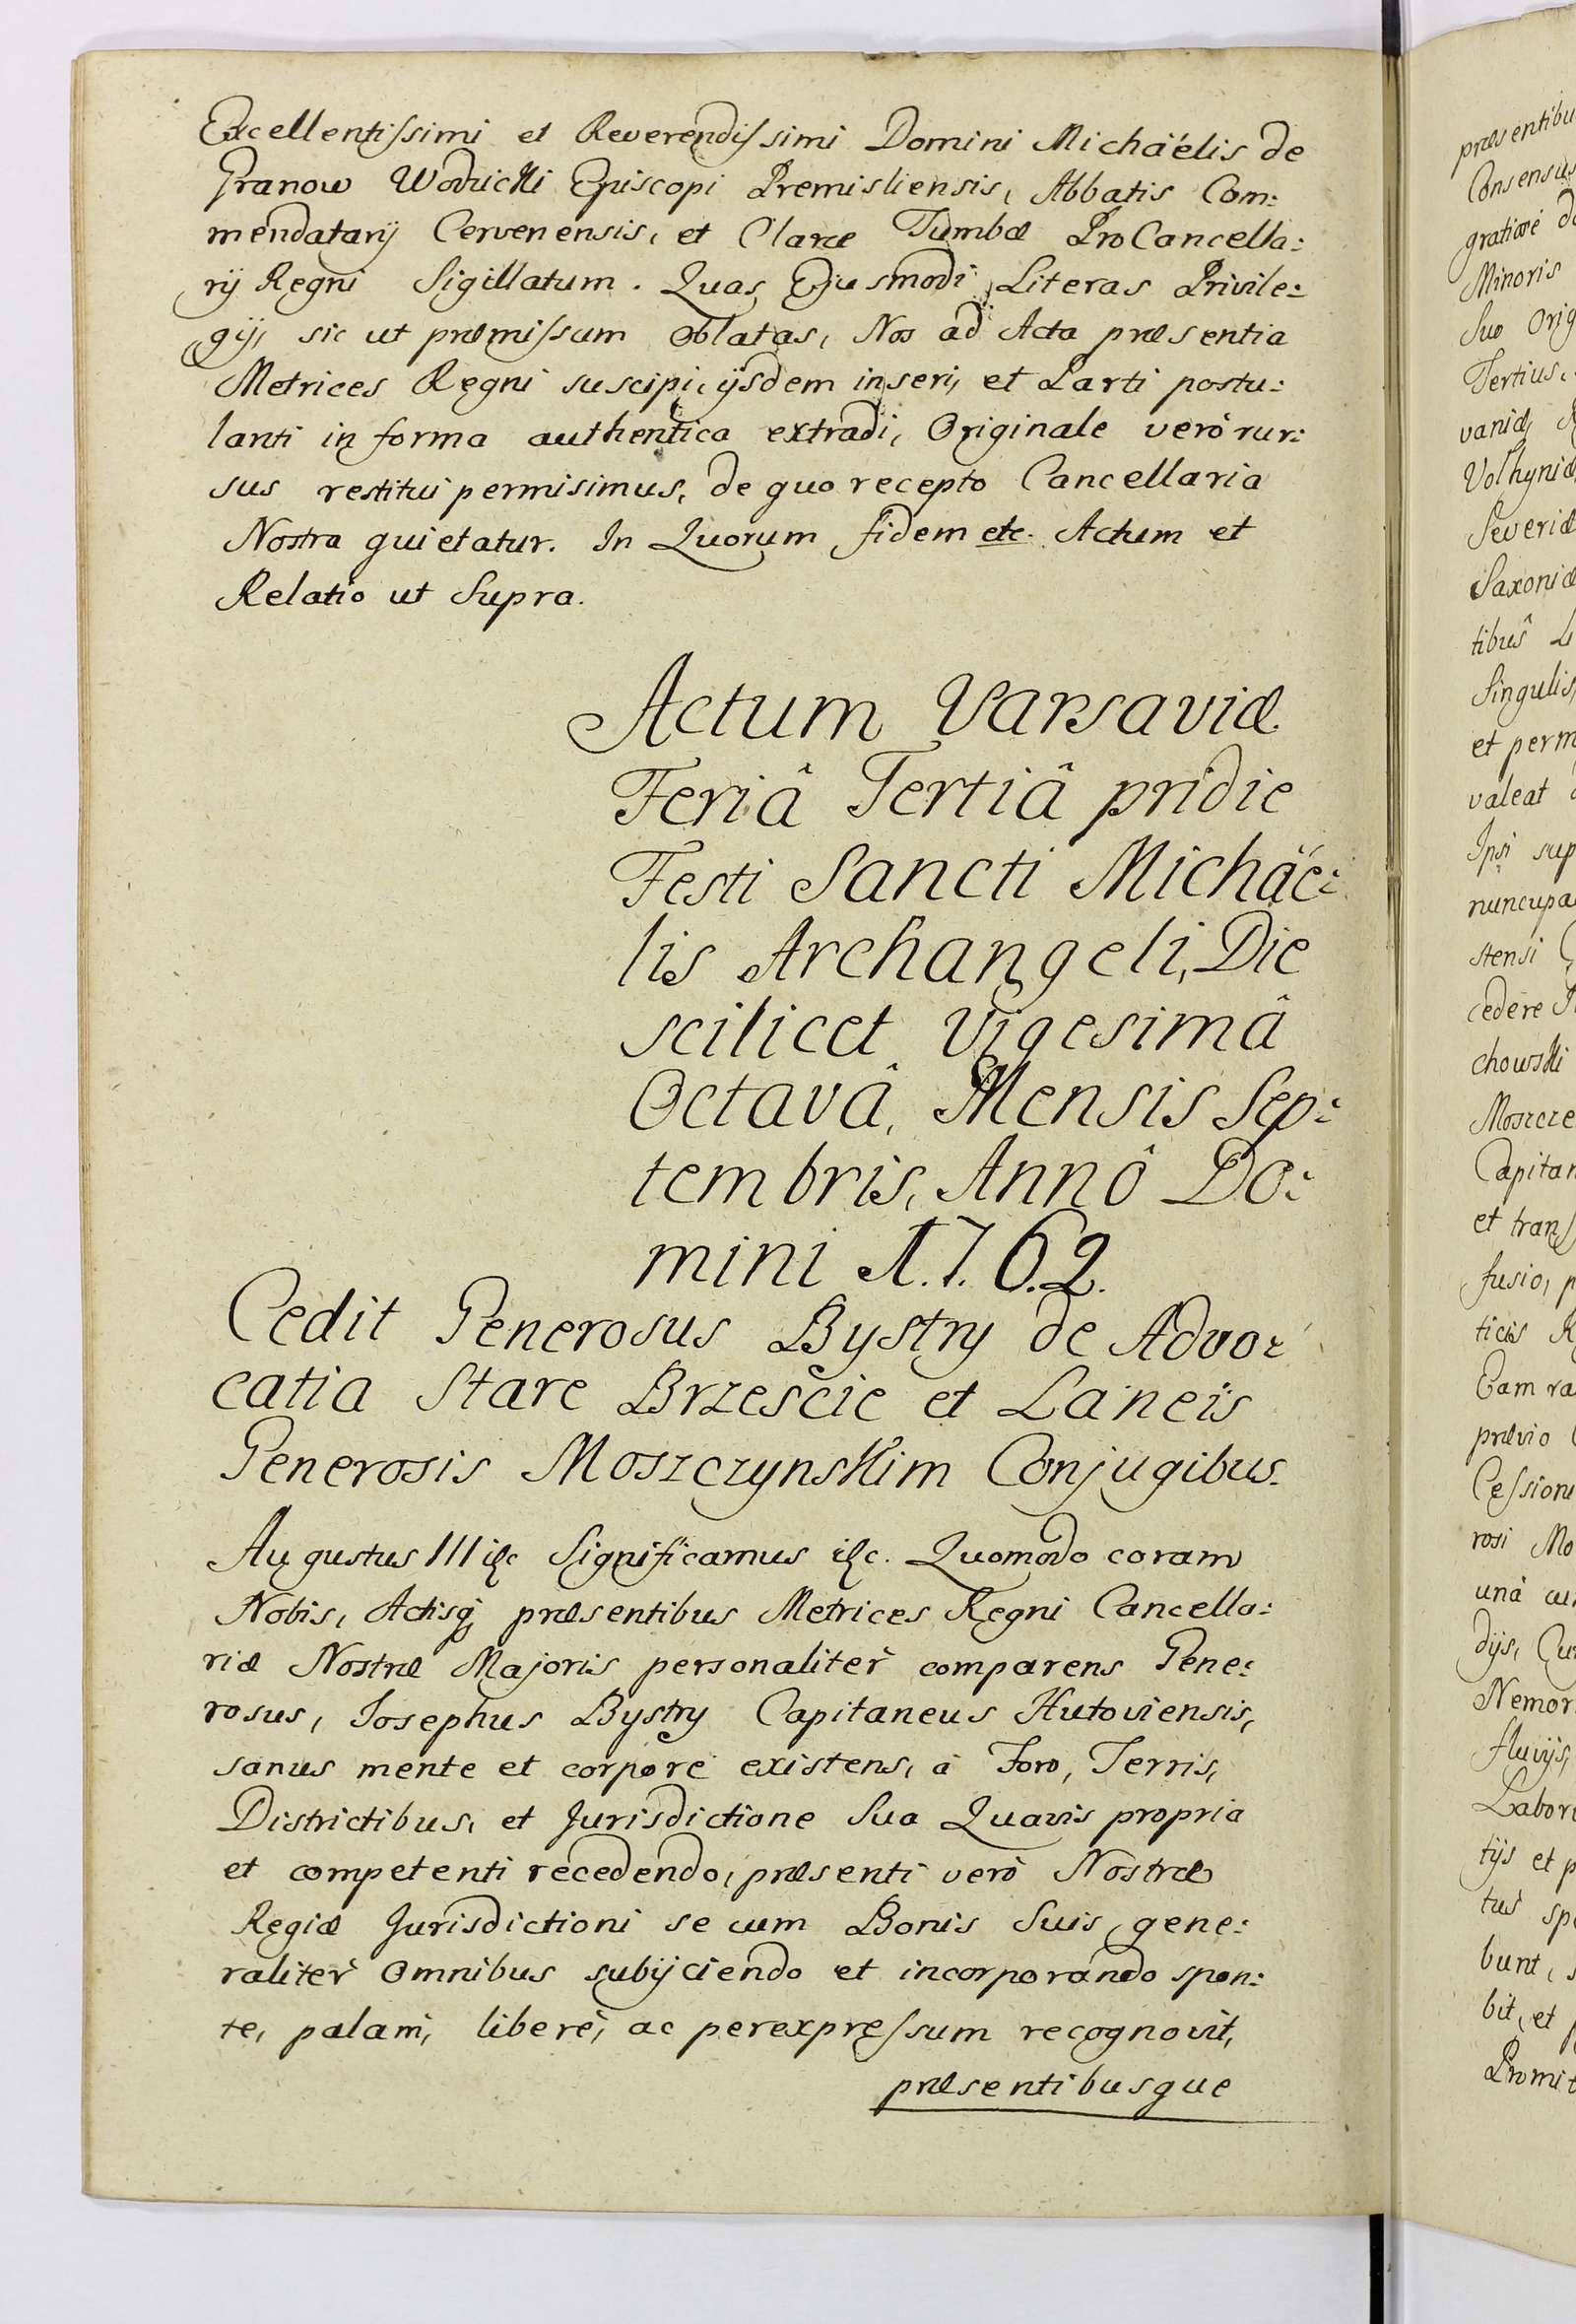 Excellentissimi et Reverendissimi Domini Michäélis de
Granow Wodzicki Episcopi Premisliensis, Abbatis Com:
mendatarij Cervenensis, et Claræ Tumbæ ProCancella:
rij Regni Sigillatum. Quas Ejusmodi Literas Privile:
gij, sic ut præmissum Oblatas, Nos ad Acta præsentia
Metrices Regni suscipi, ijsdem inseri, et Parti postu:
lanti in forma authentica extradi, Originale verò rur:
sus restitui permisimus, de quo recepto Cancellaria
Nostra quietatur. In Quorum fidem etc. Actum et
Relatio ut Supra.
Actum Varsaviæ
Feriâ Tertiâ pridie
Festi Sancti Michäé:
lis Archangeli, Die
scilicet Vigesimâ
Octavâ, Mensis Sep:
tembris, Annô Do:
mini 1.7.6.2.
Cedit Generosus Bystry de Advo:
catia Stare Brzescie et Laneis
Generosis Moszczynskim Conjugibus.
Augustus III etc Significamus etc. Quomodo coram
Nobis, Actisq́ præsentibus Metrices Regni Cancella:
riæ Nostræ Majoris personalitèr comparens Gene:
rosus, Josephus Bystry Capitaneus Hutoviensis,
sanus mente et corpore existens, à Foro, Terris,
Districtibus, et Jurisdictione Sua Quavis propria
et competenti recedendo, præsenti verò Nostræ
Regiæ Jurisdictioni se cum Bonis Suis gene:
ralitèr Omnibus subijciendo et incorporando spon:
te, palam, liberè, ac perexpressum recognovit,
præsentibusque
præsentibu
Consensus
Minoris
Suo Orig
Tertius,
vaniæ,
Volhyniæ
Severiæ
Saxoniæ
tibus
Singulis,
et perm
valeat
Ipsi sup
nuncupa
stensi
cedere
chowski
Moszcze
Capitan
et trans
fusio, p
ticis R
Eam ra
prævio
Cessione
rosi Mo
unà cu
dijs, Cu
Nemor
fluvijs,
Labori
tijs et p
tus spe
bunt, s
bit, et
Promit